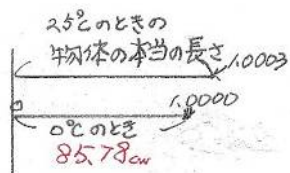 25℃のときの
物体の本当の長さ
1.0003
1.0000
0℃のとき
85.78cm